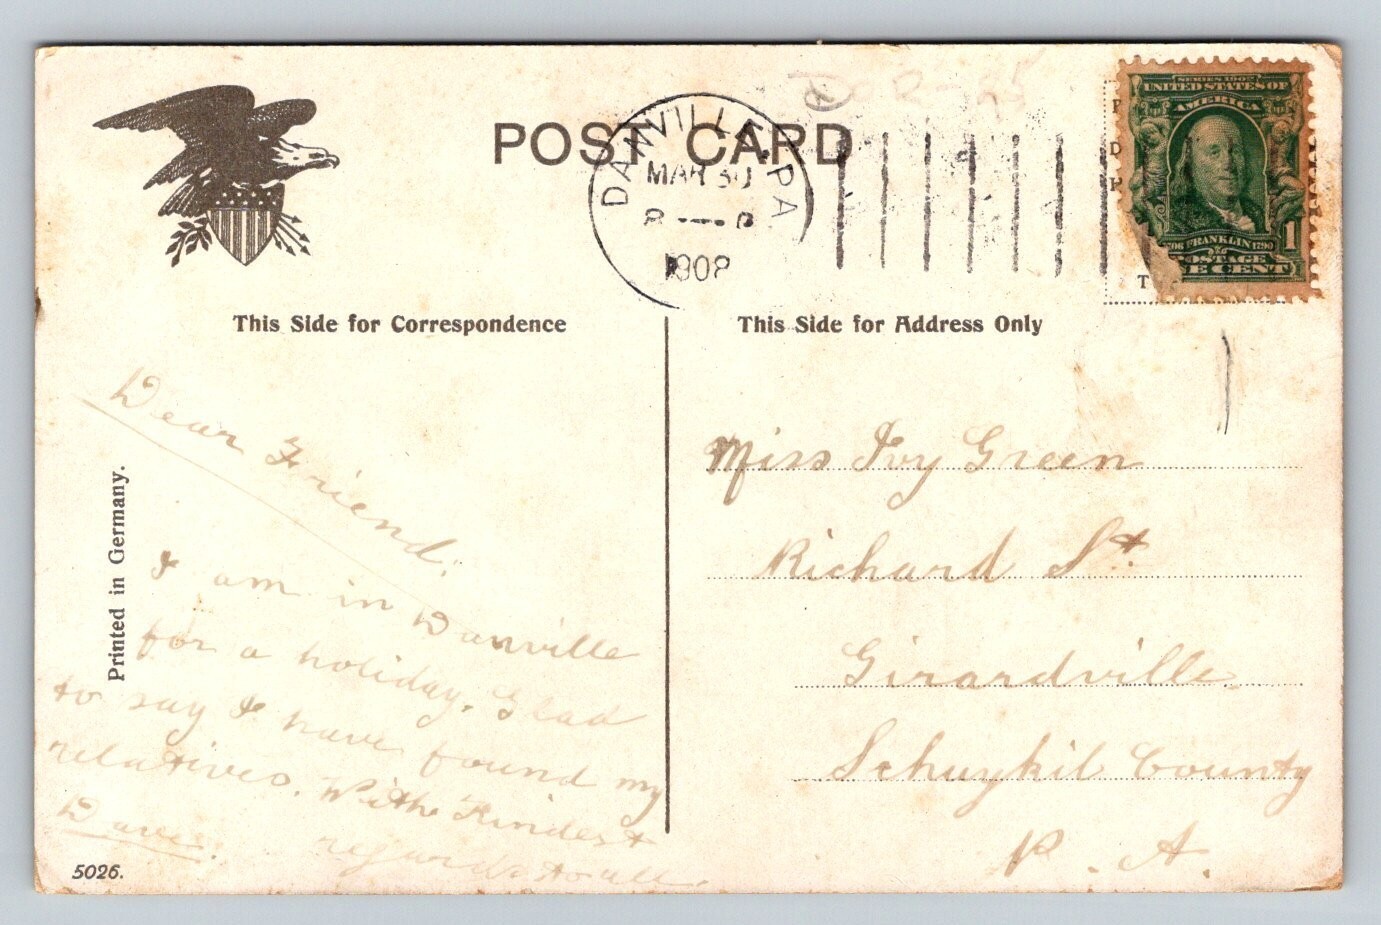 POST CARD
DANVILLE, PA
MAR 30
8 — P
1908
SERIES 1902
UNITED STATES OF
AMERICA
FRANKLIN 1790
POSTAGE
E CENT
1
This Side for Correspondence
This Side for Address Only
Printed in Germany.
Dear Friend.
I am in Danville
for a holiday. Glad
to say I have found my
relatives. With Kindest
regards to all.
Dave.
5026.
Miss Ivy Green
Richard St
Girardville
Schuykil County
P. A.